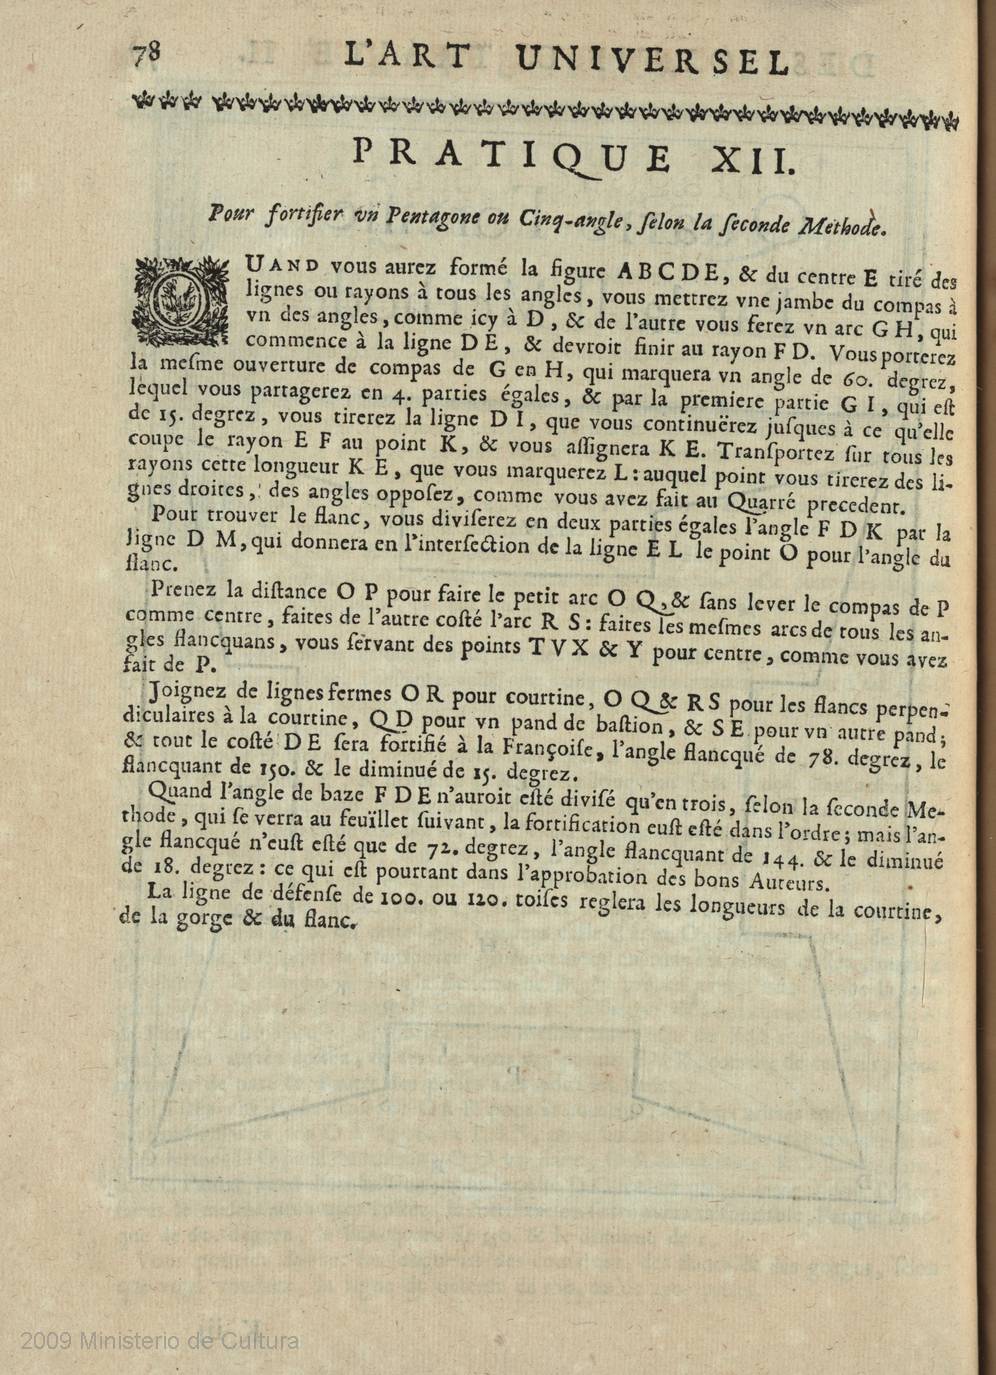 78 L'ART UNIVERSEL
PRATIQUE XII.
Pour fortifier vn Pentagone ou Cinq-angle, ſelon la ſeconde Methode.
QUAND vous aurez formé la figure ABCDE, & du centre E tiré des
lignes ou rayons à tous les angles, vous mettrez vne jambe du compas à
vn des angles, comme icy à D, & de l'autre vous ferez vn arc GH, qui
commence à la ligne DE, & devroit finir au rayon FD. Vous porterez
la meſme ouverture de compas de G en H, qui marquera vn angle de 60. degrez,
lequel vous partagerez en 4. parties égales, & par la premiere partie GI, qui eſt
de 15. degrez, vous tirerez la ligne DI, que vous continuërez juſques à ce qu'elle
coupe le rayon EF au point K, & vous aſſignera KE. Tranſportez ſur tous les
rayons cette longueur KE, que vous marquerez L: auquel point vous tirerez des li-
gnes droites, des angles oppoſez, comme vous avez fait au Quarré precedent.
Pour trouver le flanc, vous diviſerez en deux parties égales l'angle FDK par la
ligne DM, qui donnera en l'interſection de la ligne EL le point O pour l'angle du
flanc.
Prenez la diſtance OP pour faire le petit arc OQ, & ſans lever le compas de P
comme centre, faites de l'autre coſté l'arc RS: faites les meſmes arcs de tous les an-
gles flancquans, vous ſervant des points TVX & Y pour centre, comme vous avez
fait de P.
Joignez de lignes fermes OR pour courtine, OQ & RS pour les flancs perpen-
diculaires à la courtine, QD pour vn pand de baſtion, & SE pour vn autre pand;
& tout le coſté DE ſera fortifié à la Françoiſe, l'angle flancqué de 78. degrez, le
flancquant de 150. & le diminué de 15. degrez.
Quand l'angle de baze FDE n'auroit eſté diviſé qu'en trois, ſelon la ſeconde Me-
thode, qui ſe verra au feuïllet ſuivant, la fortification euſt eſté dans l'ordre; mais l'an-
gle flancqué n'euſt eſté que de 72. degrez, l'angle flancquant de 144. & le diminué
de 18. degrez: ce qui eſt pourtant dans l'approbation des bons Auteurs.
La ligne de défenſe de 100. ou 120. toiſes reglera les longueurs de la courtine,
de la gorge & du flanc.
2009 Ministerio de Cultura